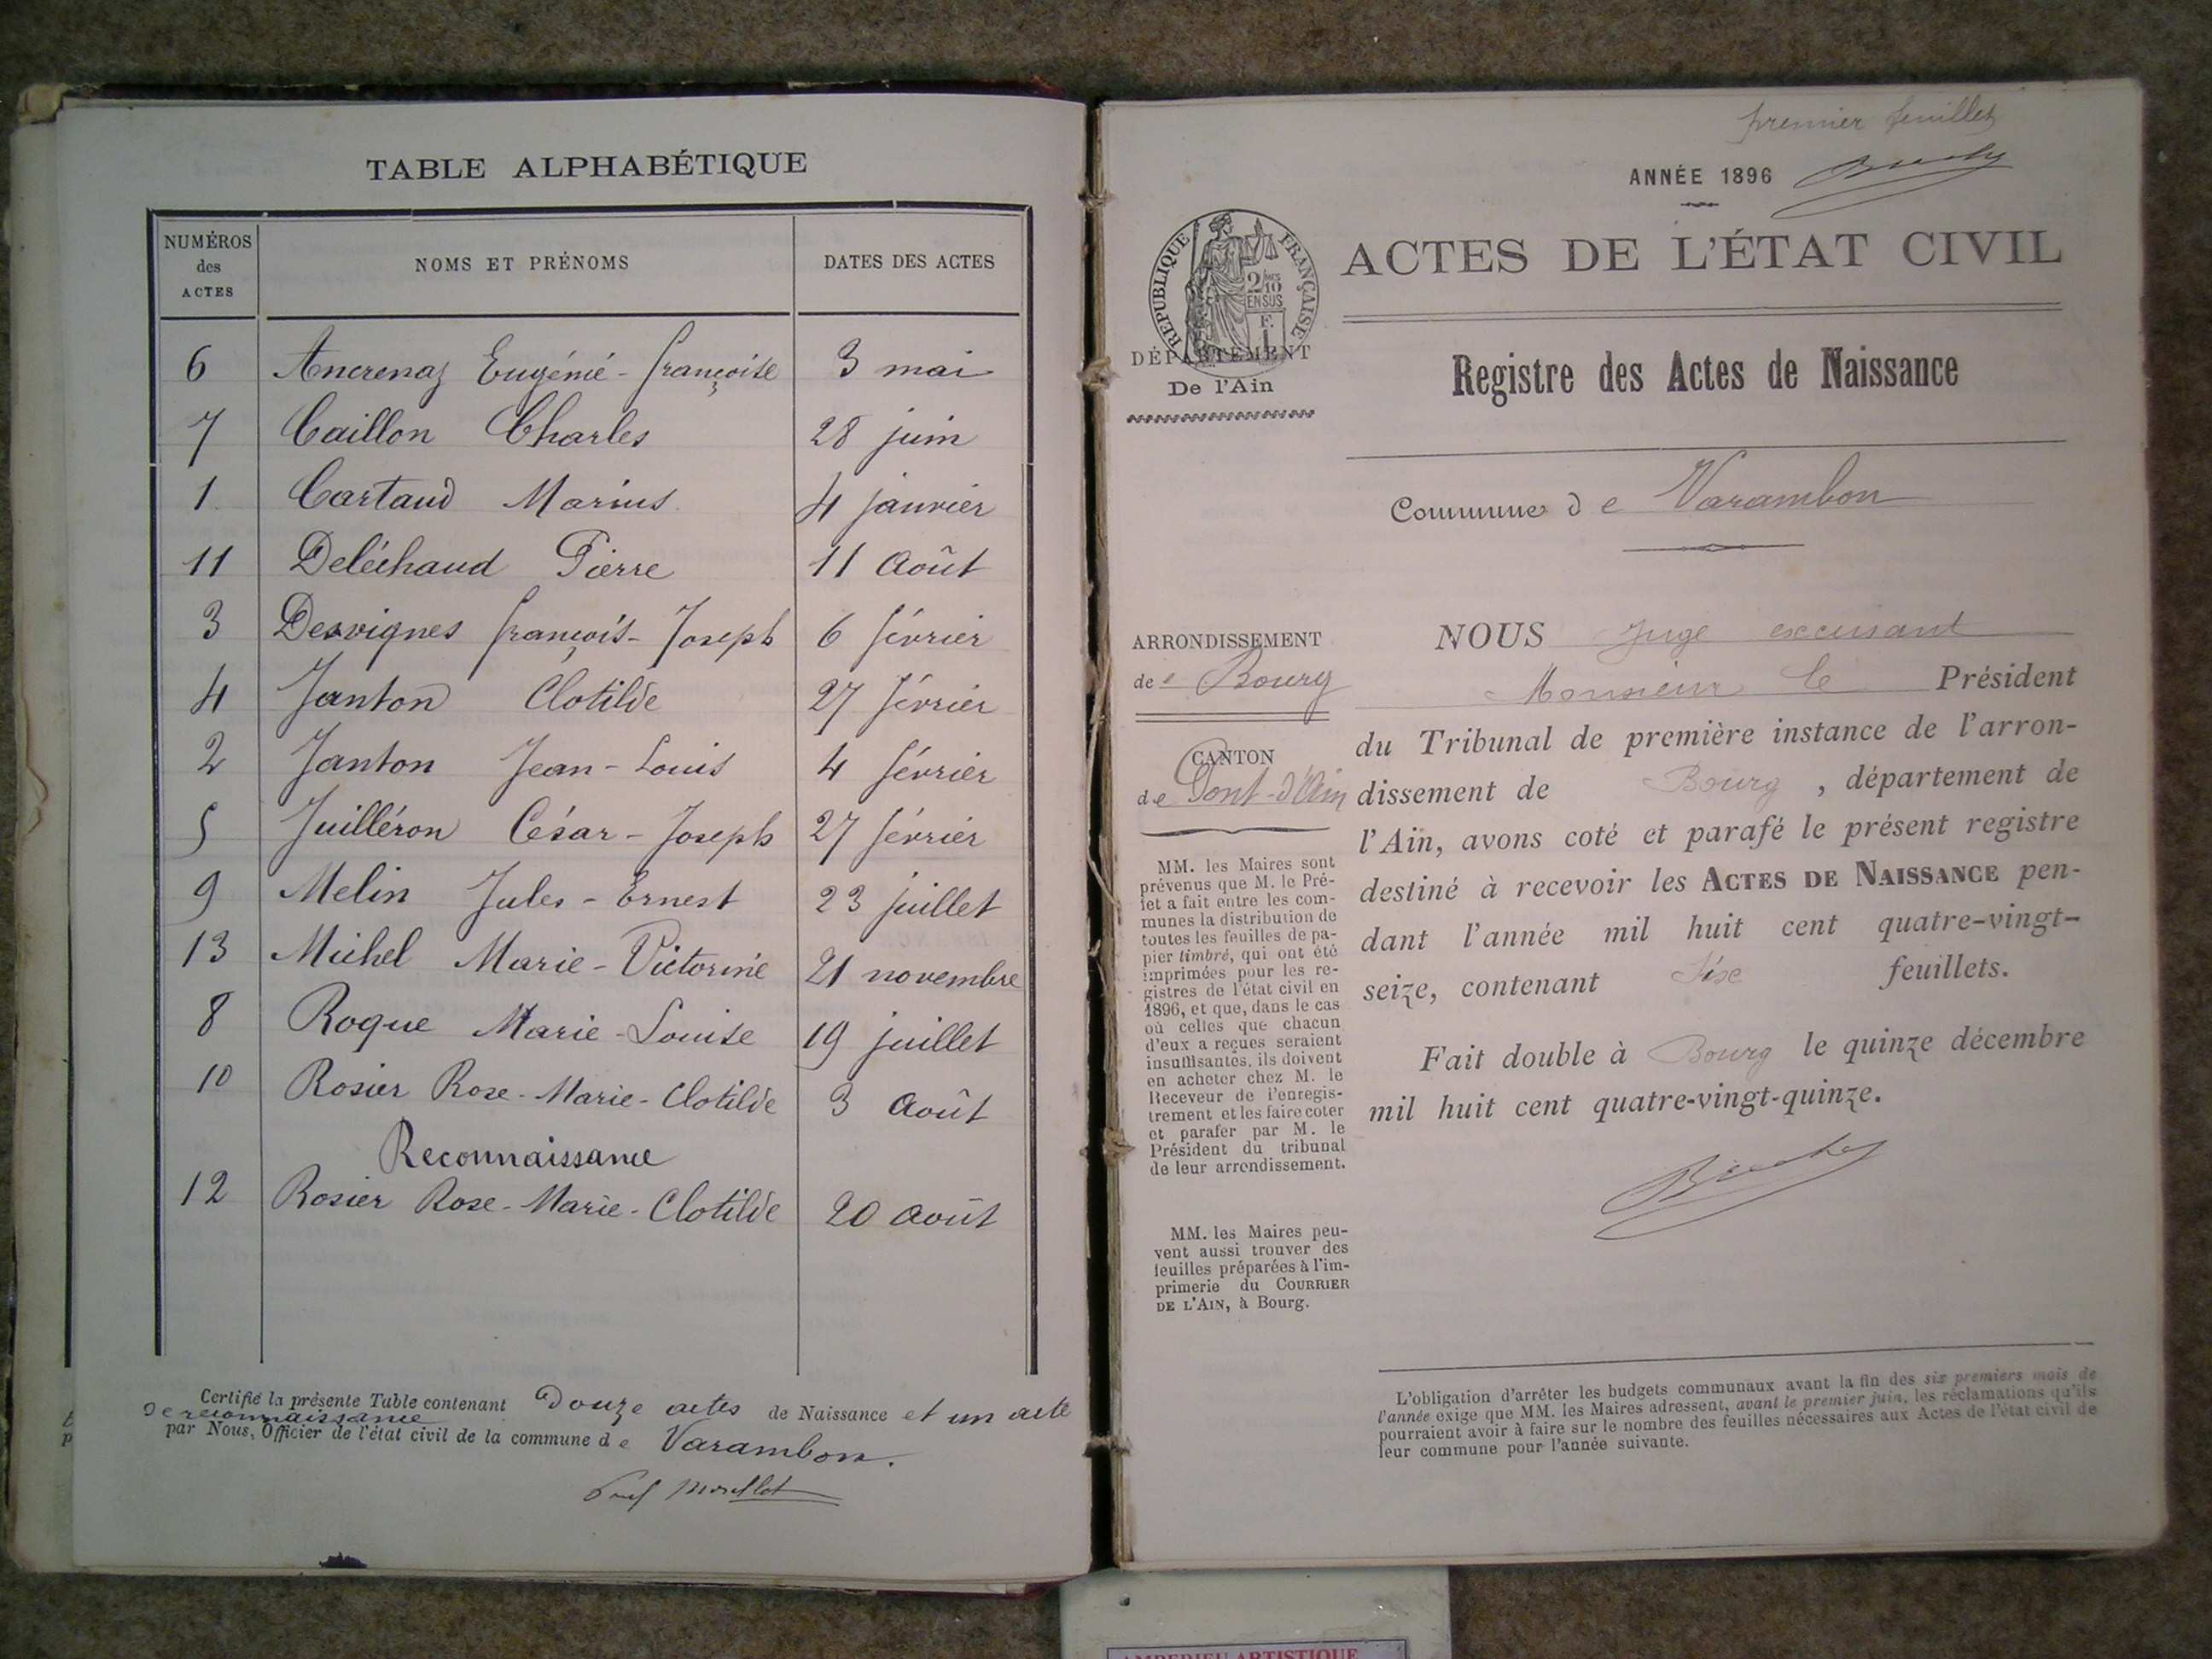 TABLE ALPHABÉTIQUE
NUMÉROS des ACTES
NOMS ET PRÉNOMS
DATES DES ACTES
6 Ancrenaz Eugénie-françoise 3 mai
7 Caillon Charles 28 juin
1 Cartaud Marius 4 janvier
11 Deléchaud Pierre 11 Août
3 Desvignes françois-Joseph 6 février
4 Janton Clotilde 27 février
2 Janton Jean-Louis 4 février
5 Juilléron César-Joseph 27 février
9 Melin Jules-Ernest 23 juillet
13 Michel Marie-Victorine 21 novembre
8 Roque Marie-Louise 19 juillet
10 Rosier Rose-Marie-Clotilde 3 Août
Reconnaissance
12 Rosier Rose-Marie-Clotilde 20 août
Certifié la présente Table contenant Douze actes de Naissance et un acte
de reconnaissance
par Nous, Officier de l'état civil de la commune de Varambon.
premier feuillet
ANNÉE 1896
RÉPUBLIQUE FRANÇAISE
2/10
EN SUS
ACTES DE L'ÉTAT CIVIL
DÉPARTEMENT
De l'Ain
Registre des Actes de Naissance
Commune de Varambon
ARRONDISSEMENT
de Bourg
CANTON
de Pont-d'Ain
MM. les Maires sont
prévenus que M. le Pré-
fet a fait entre les com-
munes la distribution de
toutes les feuilles de pa-
pier timbré, qui ont été
imprimées pour les re-
gistres de l'état civil en
1896, et que, dans le cas
où celles que chacun
d'eux a reçues seraient
insuffisantes, ils doivent
en acheter chez M. le
Receveur de l'enregis-
trement et les faire coter
et parafer par M. le
Président du tribunal
de leur arrondissement.
MM. les Maires peu-
vent aussi trouver des
feuilles préparées à l'im-
primerie du COURRIER
DE L'AIN, à Bourg.
NOUS Juge excusant
Monsieur le Président
du Tribunal de première instance de l'arron-
dissement de Bourg, département de
l'Ain, avons coté et parafé le présent registre
destiné à recevoir les ACTES DE NAISSANCE pen-
dant l'année mil huit cent quatre-vingt-
seize, contenant Six feuillets.
Fait double à Bourg le quinze décembre
mil huit cent quatre-vingt-quinze.
L'obligation d'arrêter les budgets communaux avant la fin des six premiers mois de
l'année exige que MM. les Maires adressent, avant le premier juin, les réclamations qu'ils
pourraient avoir à faire sur le nombre des feuilles nécessaires aux Actes de l'état civil de
leur commune pour l'année suivante.